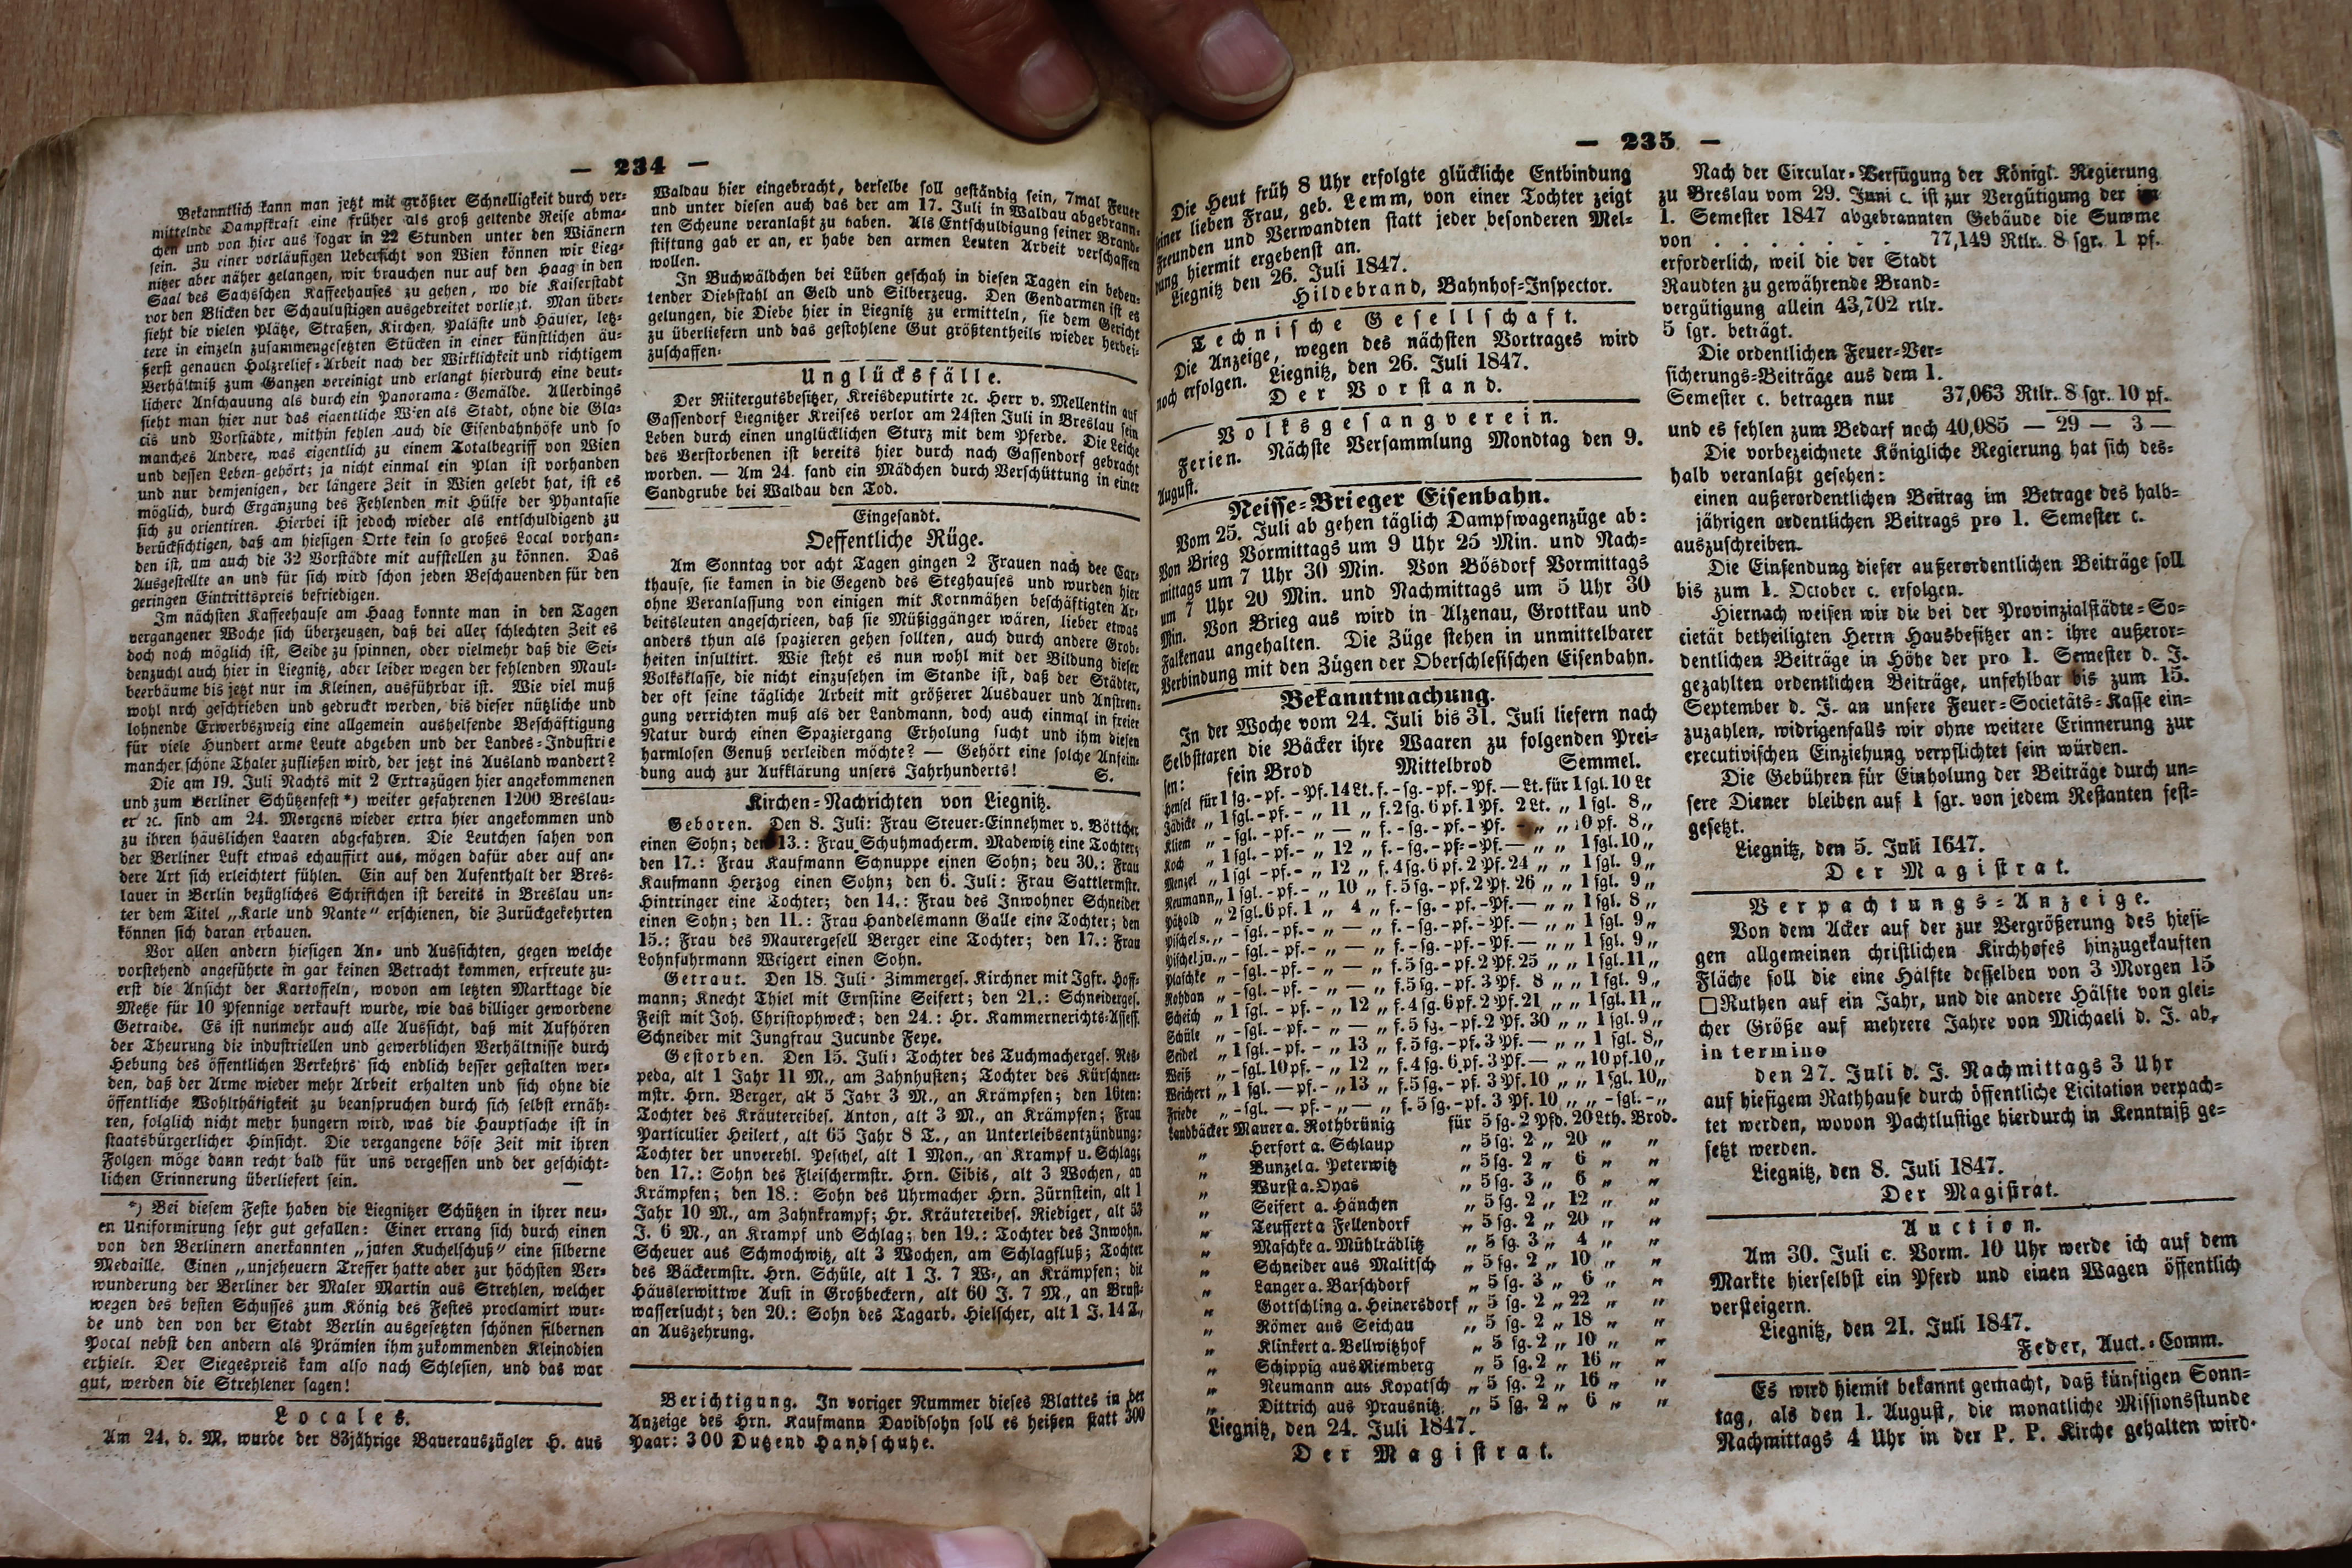 — 234 —
Bekanntlich kann man jetzt mit größter Schnelligkeit durch ver-
mittelnde Dampfkraft eine früher als groß geltende Reise abma-
chen und von hier aus sogar in 22 Stunden unter den Wiänern
sein. Zu einer vorläufigen Uebersicht von Wien können wir Lieg-
nitzer aber näher gelangen, wir brauchen nur auf den Haag in den
Saal des Sachsschen Kaffeehauses zu gehen, wo die Kaiserstadt
vor den Blicken der Schaulustigen ausgebreitet vorliegt. Man über-
sieht die vielen Plätze, Straßen, Kirchen, Paläste und Häuser, letz-
tere in einzeln zusammengesetzten Stücken in einer künstlichen äu-
ßerst genauen Holzrelief-Arbeit nach der Wirklichkeit und richtigem
Verhältniß zum Ganzen vereinigt und erlangt hierdurch eine deut-
lichere Anschauung als durch ein Panorama-Gemälde. Allerdings
sieht man hier nur das eigentliche Wien als Stadt, ohne die Gla-
cis und Vorstädte, mithin fehlen auch die Eisenbahnhöfe und so
manches Andere, was eigentlich zu einem Totalbegriff von Wien
und dessen Leben gehört; ja nicht einmal ein Plan ist vorhanden
und nur demjenigen, der längere Zeit in Wien gelebt hat, ist es
möglich, durch Ergänzung des Fehlenden mit Hülfe der Phantasie
sich zu orientiren. Hierbei ist jedoch wieder als entschuldigend zu
berücksichtigen, daß am hiesigen Orte kein so großes Local vorhan-
den ist, um auch die 32 Vorstädte mit aufstellen zu können. Das
Ausgestellte an und für sich wird schon jeden Beschauenden für den
geringen Eintrittspreis befriedigen.
Im nächsten Kaffeehause am Haag konnte man in den Tagen
vergangener Woche sich überzeugen, daß bei aller schlechten Zeit es
doch noch möglich ist, Seide zu spinnen, oder vielmehr daß die Sei-
denzucht auch hier in Liegnitz, aber leider wegen der fehlenden Maul-
beerbäume bis jetzt nur im Kleinen, ausführbar ist. Wie viel muß
wohl nrch geschrieben und gedruckt werden, bis dieser nützliche und
lohnende Erwerbszweig eine allgemein aushelfende Beschäftigung
für viele Hundert arme Leute abgeben und der Landes-Industrie
mancher schöne Thaler zufließen wird, der jetzt ins Ausland wandert?
Die am 19. Juli Nachts mit 2 Extrazügen hier angekommenen
und zum Berliner Schützenfest *) weiter gefahrenen 1200 Breslau-
er ꝛc. sind am 24. Morgens wieder extra hier angekommen und
zu ihren häuslichen Laaren abgefahren. Die Leutchen sahen von
der Berliner Luft etwas echauffirt aus, mögen dafür aber auf an-
dere Art sich erleichtert fühlen. Ein auf den Aufenthalt der Bres-
lauer in Berlin bezügliches Schriftchen ist bereits in Breslau un-
ter dem Titel „Karle und Nante“ erschienen, die Zurückgekehrten
können sich daran erbauen.
Vor allen andern hiesigen An- und Aussichten, gegen welche
vorstehend angeführte in gar keinen Betracht kommen, erfreute zu-
erst die Ansicht der Kartoffeln, wovon am letzten Marktage die
Metze für 10 Pfennige verkauft wurde, wie das billiger gewordene
Getraide. Es ist nunmehr auch alle Aussicht, daß mit Aufhören
der Theurung die industriellen und gewerblichen Verhältnisse durch
Hebung des öffentlichen Verkehrs sich endlich besser gestalten wer-
den, daß der Arme wieder mehr Arbeit erhalten und sich ohne die
öffentliche Wohlthätigkeit zu beanspruchen durch sich selbst ernäh-
ren, folglich nicht mehr hungern wird, was die Hauptsache ist in
staatsbürgerlicher Hinsicht. Die vergangene böse Zeit mit ihren
Folgen möge dann recht bald für uns vergessen und der geschicht-
lichen Erinnerung überliefert sein. —
*) Bei diesem Feste haben die Liegnitzer Schützen in ihrer neu-
en Uniformirung sehr gut gefallen: Einer errang sich durch einen
von den Berlinern anerkannten „jaten Kuchelschuß“ eine silberne
Medaille. Einen „unjeheuern Treffer hatte aber zur höchsten Ver-
wunderung der Berliner der Maler Martin aus Strehlen, welcher
wegen des besten Schusses zum König des Festes proclamirt wur-
de und den von der Stadt Berlin ausgesetzten schönen silbernen
Pocal nebst den andern als Prämien ihm zukommenden Kleinodien
erhielt. Der Siegespreis kam also nach Schlesien, und das war
gut, werden die Strehlener sagen!
Locales.
Am 24. d. M. wurde der 83jährige Bauerauszügler H. aus
Waldau hier eingebracht, derselbe soll geständig sein, 7mal Feuer
und unter diesen auch das der am 17. Juli in Waldau abgebrann-
ten Scheune veranlaßt zu haben. Als Entschuldigung seiner Brand-
stiftung gab er an, er habe den armen Leuten Arbeit verschaffen
wollen.
In Buchwäldchen bei Lüben geschah in diesen Tagen ein bedeu-
tender Diebstahl an Geld und Silberzeug. Den Gendarmen ist es
gelungen, die Diebe hier in Liegnitz zu ermitteln, sie dem Gericht
zu überliefern und das gestohlene Gut größtentheils wieder herbei-
zuschaffen.
Unglücksfälle.
Der Rittergutsbesitzer, Kreisdeputirte ꝛc. Herr v. Mellentin auf
Gassendorf Liegnitzer Kreises verlor am 24sten Juli in Breslau sein
Leben durch einen unglücklichen Sturz mit dem Pferde. Die Leiche
des Verstorbenen ist bereits hier durch nach Gassendorf gebracht
worden. — Am 24. fand ein Mädchen durch Verschüttung in einer
Sandgrube bei Waldau den Tod.
Eingesandt.
Oeffentliche Rüge.
Am Sonntag vor acht Tagen gingen 2 Frauen nach dee Car-
thause, sie kamen in die Gegend des Steghauses und wurden hier
ohne Veranlassung von einigen mit Kornmähen beschäftigten Ar-
beitsleuten angeschrieen, daß sie Müßiggänger wären, lieber etwas
anders thun als spazieren gehen sollten, auch durch andere Grob-
heiten insultirt. Wie steht es nun wohl mit der Bildung dieser
Volksklasse, die nicht einzusehen im Stande ist, daß der Städter,
der oft seine tägliche Arbeit mit größerer Ausdauer und Anstren-
gung verrichten muß als der Landmann, doch auch einmal in freier
Natur durch einen Spaziergang Erholung sucht und ihm diesen
harmlosen Genuß verleiden möchte? — Gehört eine solche Anfein-
dung auch zur Aufklärung unsers Jahrhunderts! S.
Kirchen-Nachrichten von Liegnitz.
Geboren. Den 8. Juli: Frau Steuer-Einnehmer v. Böttcher
einen Sohn; den 13.: Frau Schuhmacherm. Madewitz eine Tochter;
den 17.: Frau Kaufmann Schnuppe einen Sohn; deu 30.: Frau
Kaufmann Herzog einen Sohn; den 6. Juli: Frau Sattlermstr.
Hintringer eine Tochter; den 14.: Frau des Inwohner Schneider
einen Sohn; den 11.: Frau Handelsmann Galle eine Tochter; den
15.: Frau des Maurergesell Berger eine Tochter; den 17.: Frau
Lohnfuhrmann Weigert einen Sohn.
Getraut. Den 18. Juli: Zimmerges. Kirchner mit Igfr. Hoff-
mann; Knecht Thiel mit Ernstine Seifert; den 21.: Schneiderges.
Feist mit Joh. Christophweck; den 24.: Hr. Kammernerichts-Assess.
Schneider mit Jungfrau Jucunde Feye.
Gestorben. Den 15. Juli: Tochter des Tuchmacherges. Nes-
peda, alt 1 Jahr 11 M., am Zahnhusten; Tochter des Kürschner-
mstr. Hrn. Berger, alt 5 Jahr 3 M., an Krämpfen; den 16ten:
Tochter des Kräutereibes. Anton, alt 3 M., an Krämpfen; Frau
Particulier Heilert, alt 65 Jahr 8 T., an Unterleibsentzündung;
Tochter der unverehl. Peschel, alt 1 Mon., an Krampf u. Schlag;
den 17.: Sohn des Fleischermstr. Hrn. Eibis, alt 3 Wochen, an
Krämpfen; den 18.: Sohn des Uhrmacher Hrn. Zürnstein, alt 1
Jahr 10 M., am Zahnkrampf; Hr. Kräutereibes. Riediger, alt 53
J. 6 M., an Krampf und Schlag; den 19.: Tochter des Inwohn.
Scheuer aus Schmochwitz, alt 3 Wochen, am Schlagfluß; Tochter
des Bäckermstr. Hrn. Schüle, alt 1 J. 7 W., an Krämpfen; die
Häuslerwittwe Aust in Großbeckern, alt 60 J. 7 M., an Brust-
wassersucht; den 20.: Sohn des Tagarb. Hielscher, alt 1 J. 14 T.,
an Auszehrung.
Berichtigung. In voriger Nummer dieses Blattes in der
Anzeige des Hrn. Kaufmann Davidsohn soll es heißen statt 300
Paar: 300 Dutzend Handschuhe.
— 235 —
Die Heut früh 8 Uhr erfolgte glückliche Entbindung
seiner lieben Frau, geb. Lemm, von einer Tochter zeigt
Freunden und Verwandten statt jeder besonderen Mel-
dung hiermit ergebenst an.
Liegnitz den 26. Juli 1847.
Hildebrand, Bahnhof-Inspector.
Technische Gesellschaft.
Die Anzeige, wegen des nächsten Vortrages wird
noch erfolgen. Liegnitz, den 26. Juli 1847.
Der Vorstand.
Volksgesangverein.
Ferien. Nächste Versammlung Mondtag den 9.
August.
Neisse-Brieger Eisenbahn.
Vom 25. Juli ab gehen täglich Dampfwagenzüge ab:
Von Brieg Vormittags um 9 Uhr 25 Min. und Nach-
mittags um 7 Uhr 30 Min. Von Bösdorf Vormittags
um 7 Uhr 20 Min. und Nachmittags um 5 Uhr 30
Min. Von Brieg aus wird in Alzenau, Grottkau und
Falkenau angehalten. Die Züge stehen in unmittelbarer
Verbindung mit den Zügen der Oberschlesischen Eisenbahn.
Bekanntmachung.
In der Woche vom 24. Juli bis 31. Juli liefern nach
Selbsttaxen die Bäcker ihre Waaren zu folgenden Prei-
sen: fein Brod Mittelbrod Semmel.
Hensel für 1 sg. - pf. - Pf. 14 Lt. f. - sg. - pf. - Pf. — Lt. für 1 sgl. 10 Lt
Jädicke „ 1 sgl. - pf. - „ 11 „ f. 2 sg. 6 pf. 1 Pf. 2 Lt. „ 1 sgl. 8 „
Kliem „ - sgl. - pf. - „ — „ f. - sg. - pf. - Pf. - „ „ 10 pf. 8 „
Koch „ 1 sgl. - pf. - „ 12 „ f. - sg. - pf. - Pf. — „ „ 1 sgl. 10 „
Menzel „ 1 sgl. - pf. - „ 12 „ f. 4 sg. 6 pf. 2 Pf. 24 „ „ 1 sgl. 9 „
Neumann „ 1 sgl. - pf. - „ 10 „ f. 5 sg. - pf. 2 Pf. 26 „ „ 1 sgl. 9 „
Pätzold „ 2 sgl. 6 pf. 1 „ 4 „ f. - sg. - pf. - Pf. — „ „ 1 sgl. 8 „
Pischel s. „ - sgl. - pf. - „ — „ f. - sg. - pf. - Pf. — „ „ 1 sgl. 9 „
Pischel ju. „ - sgl. - pf. - „ — „ f. - sg. - pf. - Pf. — „ „ 1 sgl. 9 „
Plaschke „ - sgl. - pf. - „ — „ f. 5 sg. - pf. 2 Pf. 25 „ „ 1 sgl. 11 „
Rohdan „ - sgl. - pf. - „ — „ f. 5 sg. - pf. 3 Pf. 8 „ „ 1 sgl. 9 „
Scheich „ 1 sgl. - pf. - „ 12 „ f. 4 sg. 6 pf. 2 Pf. 21 „ „ 1 sgl. 11 „
Schüle „ - sgl. - pf. - „ — „ f. 5 sg. - pf. 2 Pf. 30 „ „ 1 sgl. 9 „
Seidel „ 1 sgl. - pf. - „ 13 „ f. 5 sg. - pf. 3 Pf. — „ „ 1 sgl. 8 „
Weiß „ - sgl. 10 pf. - „ 12 „ f. 4 sg. 6 pf. 3 Pf. — „ „ 10 pf. 10 „
Weichert „ 1 sgl. — pf. - „ 13 „ f. 5 sg. - pf. 3 Pf. 10 „ „ 1 sgl. 10 „
Friebe „ - sgl. — pf. - „ — „ f. 5 sg. - pf. 3 Pf. 10 „ „ - sgl. - „
Landbäcker Mauer a. Rothbrünig für 5 sg. 2 Pfd. 20 Lth. Brod.
„ Herfort a. Schlaup „ 5 sg. 2 „ 20 „ „
„ Bunzel a. Peterwitz „ 5 sg. 2 „ 6 „ „
„ Wurst a. Oyas „ 5 sg. 3 „ 6 „ „
„ Seifert a. Hänchen „ 5 sg. 2 „ 12 „ „
„ Teuffert a Fellendorf „ 5 sg. 2 „ 20 „ „
„ Maschke a. Mühlrädlitz „ 5 sg. 3 „ 4 „ „
„ Schneider aus Malitsch „ 5 sg. 2 „ 10 „ „
„ Langer a. Barschdorf „ 5 sg. 3 „ 6 „ „
„ Gottschling a. Heinersdorf „ 5 sg. 2 „ 22 „ „
„ Römer aus Seichau „ 5 sg. 2 „ 18 „ „
„ Klinkert a. Bellwitzhof „ 5 sg. 2 „ 10 „ „
„ Schippig aus Riemberg „ 5 sg. 2 „ 16 „ „
„ Neumann aus Kopatsch „ 5 sg. 2 „ 16 „ „
„ Dittrich aus Prausnitz „ 5 sg. 2 „ 6 „ „
Liegnitz, den 24. Juli 1847.
Der Magistrat.
Nach der Circular-Verfügung der Königl. Regierung
zu Breslau vom 29. Juni c. ist zur Vergütigung der im
1. Semester 1847 abgebrannten Gebäude die Summe
von . . . . . . . 77,149 Rtlr. 8 sgr. 1 pf.
erforderlich, weil die der Stadt
Raudten zu gewährende Brand-
vergütigung allein 43,702 rtlr.
5 sgr. beträgt.
Die ordentlichen Feuer-Ver-
sicherungs-Beiträge aus dem 1.
Semester c. betragen nur 37,063 Rtlr. 8 sgr. 10 pf.
und es fehlen zum Bedarf noch 40,085 — 29 — 3 —
Die vorbezeichnete Königliche Regierung hat sich des-
halb veranlaßt gesehen:
einen außerordentlichen Beitrag im Betrage des halb-
jährigen ordentlichen Beitrags pro 1. Semester c.
auszuschreiben.
Die Einsendung dieser außerordentlichen Beiträge soll
bis zum 1. October c. erfolgen.
Hiernach weisen wir die bei der Provinzialstädte-So-
cietät betheiligten Herrn Hausbesitzer an: ihre außeror-
dentlichen Beiträge in Höhe der pro 1. Semester d. J.
gezahlten ordentlichen Beiträge, unfehlbar bis zum 15.
September d. J. an unsere Feuer-Societäts-Kasse ein-
zuzahlen, widrigenfalls wir ohne weitere Erinnerung zur
executivischen Einziehung verpflichtet sein würden.
Die Gebühren für Einholung der Beiträge durch un-
sere Diener bleiben auf 1 sgr. von jedem Restanten fest-
gesetzt.
Liegnitz, den 5. Juli 1647.
Der Magistrat.
Verpachtungs-Anzeige.
Von dem Acker auf der zur Vergrößerung des hiesi-
gen allgemeinen christlichen Kirchhofes hinzugekauften
Fläche soll die eine Hälfte desselben von 3 Morgen 15
□Ruthen auf ein Jahr, und die andere Hälfte von glei-
cher Größe auf mehrere Jahre von Michaeli d. J. ab,
in termino
den 27. Juli d. J. Nachmittags 3 Uhr
auf hiesigem Rathhause durch öffentliche Licitation verpach-
tet werden, wovon Pachtlustige hierdurch in Kenntniß ge-
setzt werden.
Liegnitz, den 8. Juli 1847.
Der Magistrat.
Auction.
Am 30. Juli c. Vorm. 10 Uhr werde ich auf dem
Markte hierselbst ein Pferd und einen Wagen öffentlich
versteigern.
Liegnitz, den 21. Juli 1847.
Feder, Auct.-Comm.
Es wird hiemit bekannt gemacht, daß künftigen Sonn-
tag, als den 1. August, die monatliche Missionsstunde
Nachmittags 4 Uhr in der P. P. Kirche gehalten wird.